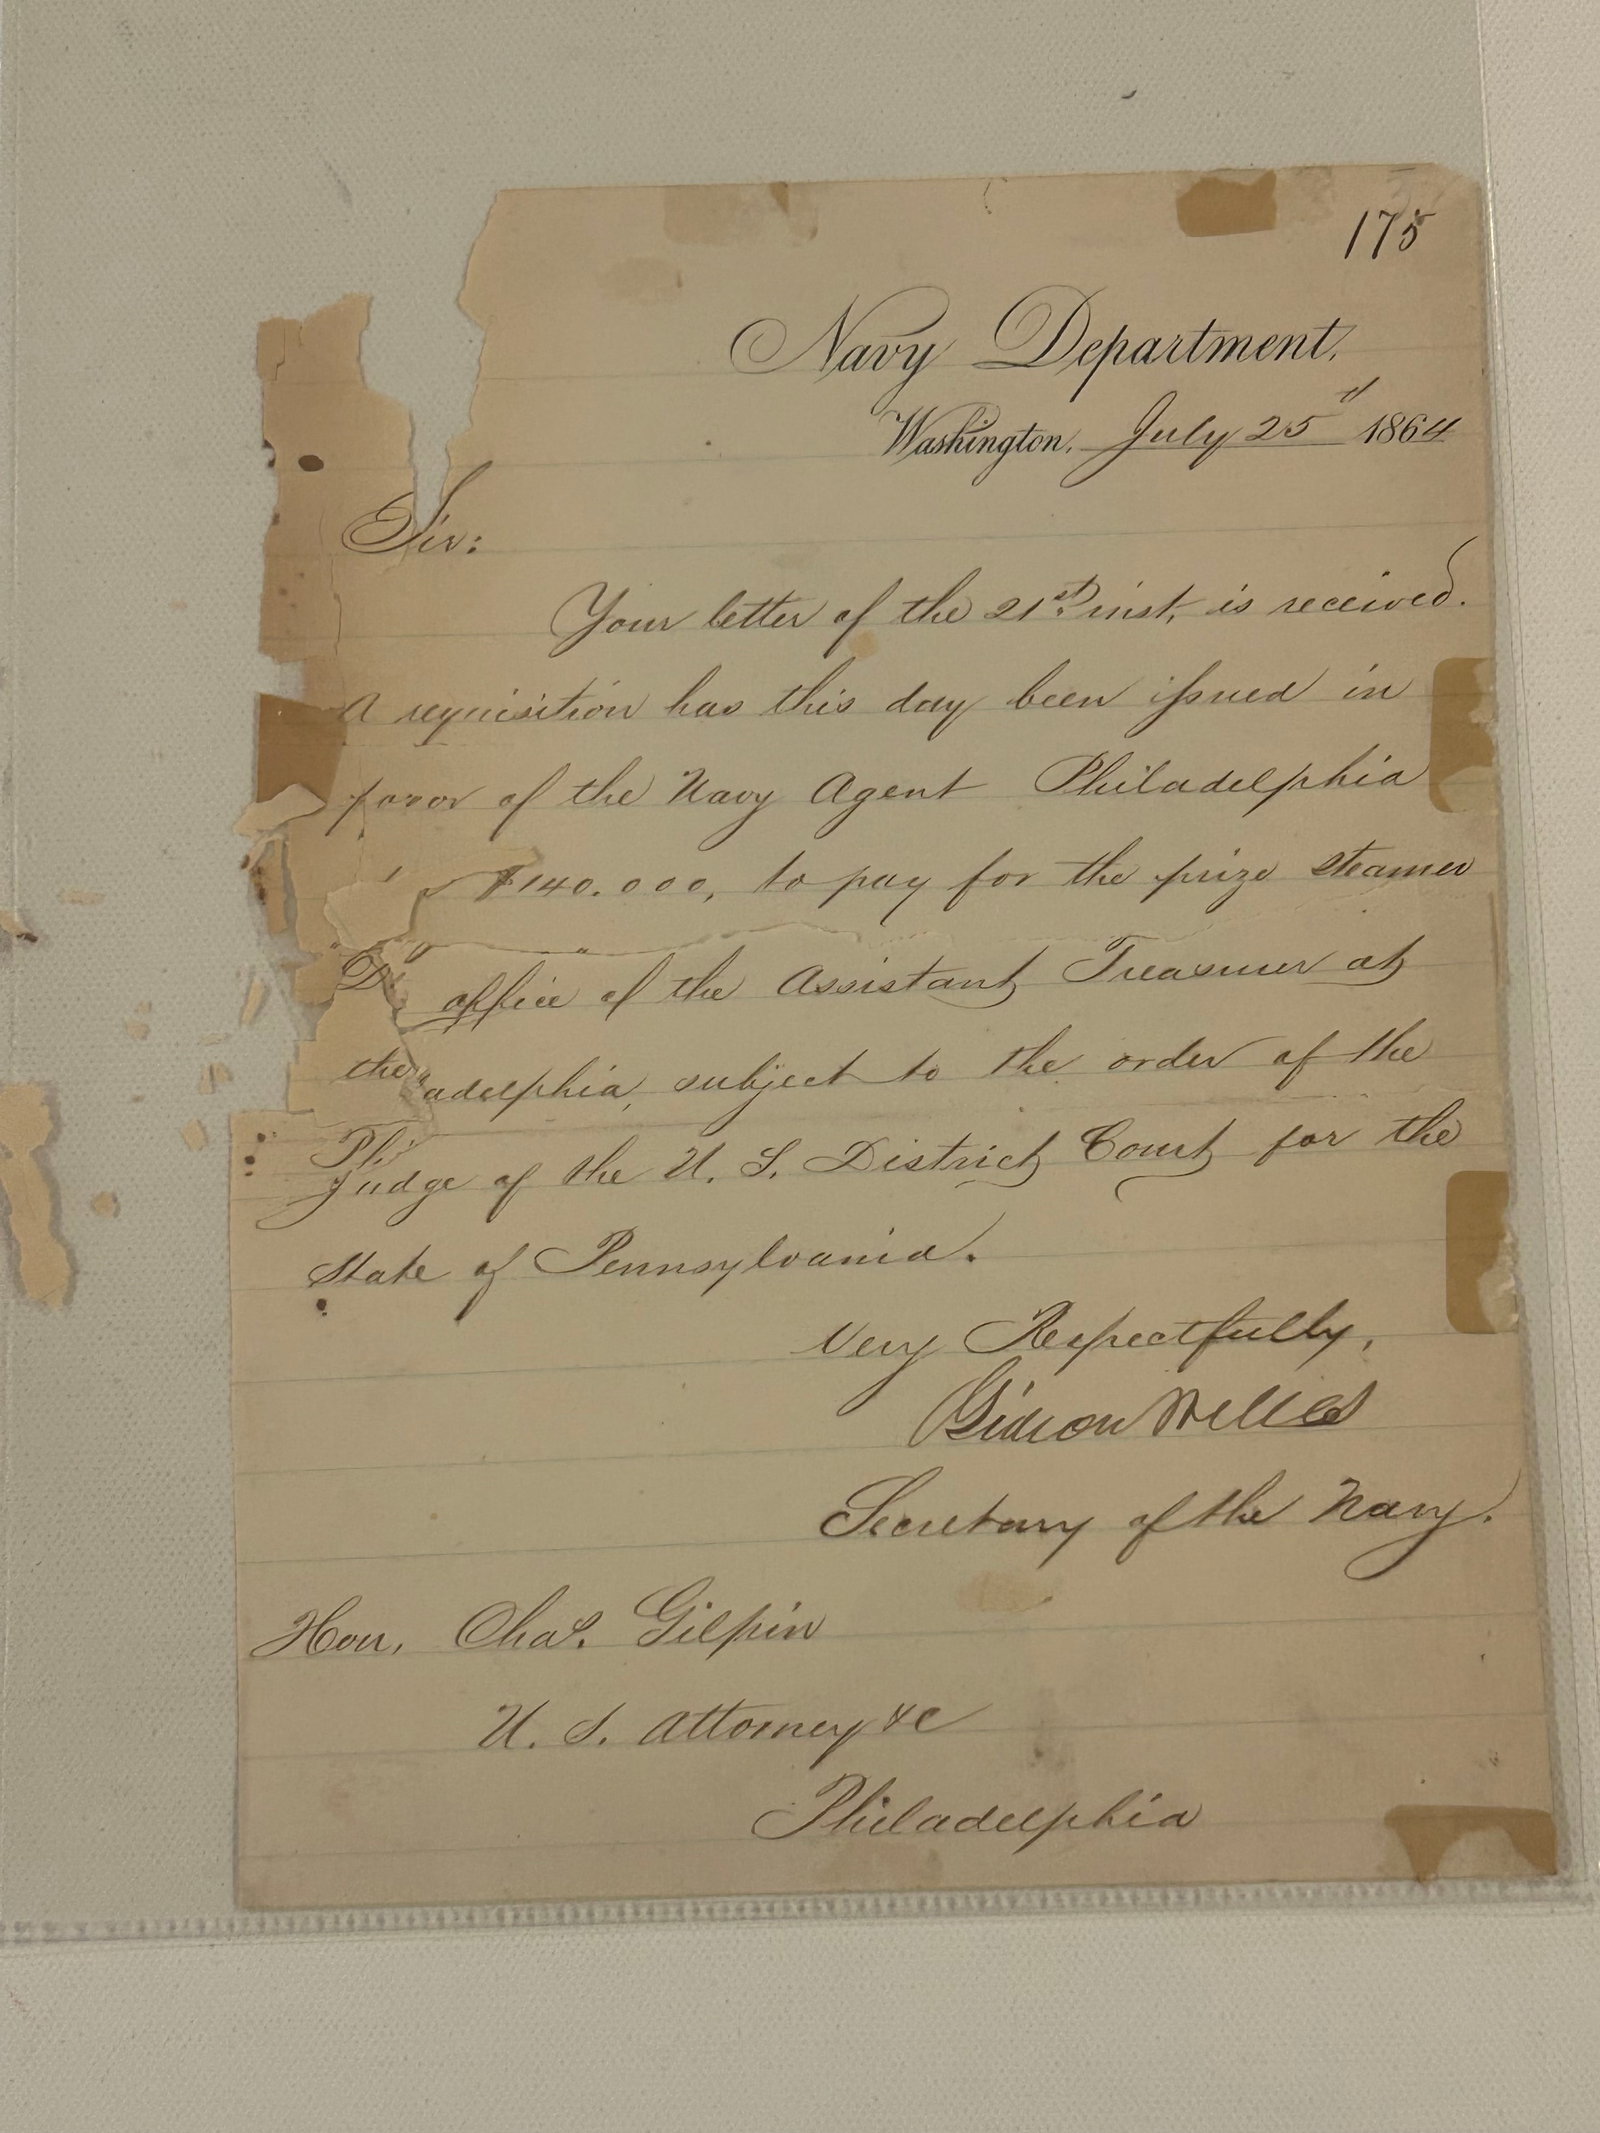 175
Navy Department,
Washington, July 25" 1864
Sir:
Your letter of the 21st inst, is received.
A requisition has this day been issued in
favor of the Navy Agent Philadelphia
$140.000, to pay for the prize steamer
office of the Assistant Treasurer at
the adelphia, subject to the order of the
Judge of the U. S. District Court for the
State of Pennsylvania.
Very Respectfully,
Gideon Welles
Secretary of the Navy.
Hon, Chas. Gilpin
U. S. Attorney &c
Philadelphia